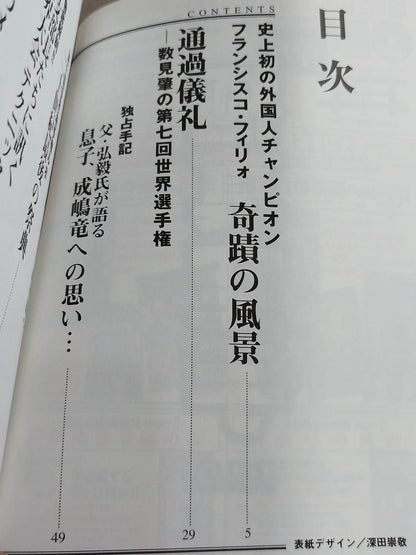 CONTENTS
目次
史上初の外国人チャンピオン
フランシスコ・フィリォ
奇蹟の風景
5
通過儀礼
―数見肇の第七回世界選手権
29
独占手記
父・弘毅氏が語る
息子、成嶋竜への思い…
49
表紙デザイン／深田崇敬